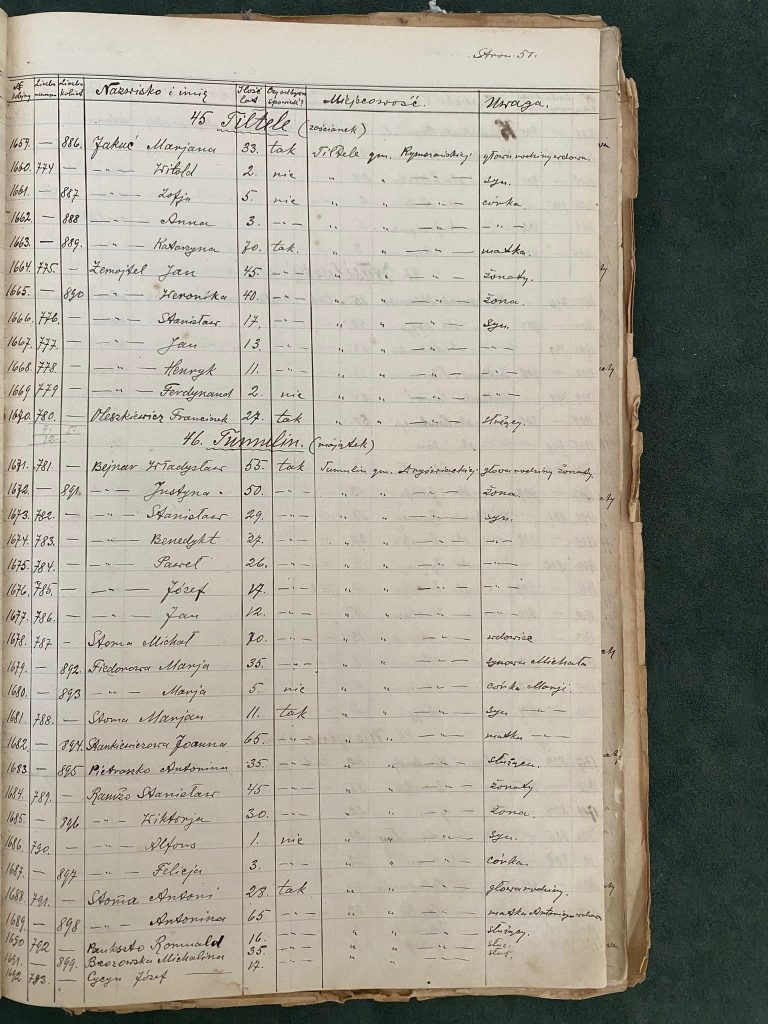 Stron. 51.
№ kolejny Liczba mężczyzn Liczba kobiet Nazwisko i imię Ilość lat Czy odbywa spowiedź? Miejscowość. Uwaga.
45 Tiltele (zaścianek)
1659. — 886. Jakuć Marjana 33. tak Tiltele gm. głowa rodziny wdowa.
1660. 774 — —"— Witold 2. nie " " —"— syn.
1661. — 887 —"— Zofja 5. nie " " —"— córka
1662. — 888 —"— Anna 3. —"— " " —"— —"—
1663. — 889. —"— Katarzyna 70. tak. " " —"— matka.
1664. 775. — Żemojtel Jan 45. —"— " " —"— żonaty.
1665. — 890 —"— Weronika 40. —"— " " —"— żona.
1666. 776. — —"— Stanisław 17. —"— " " —"— syn.
1667. 777. — —"— Jan 13. —"— " " —"— —"—
1668. 778 — —"— Henryk 11. —"— " " —"— —"—
1669 779 — —"— Ferdynand 2. nie " " —"— —"—
1670. 780. — Oleszkiewicz Franciszek 27. tak " " —"— służący.
7. 5.
12.
46. Tumulin. (majątek)
1671. 781. — Bejnar Władysław 55. tak Tumulin gm. głowa rodziny żonaty.
1672. — 891. —"— Justyna. 50. —"— " " —"— żona.
1673. 782. — —"— Stanisław 29. —"— " " —"— syn.
1674. 783. — —"— Benedykt 27. —"— " " —"— —"—
1675. 784. — —"— Paweł 26. —"— " " —"— —"—
1676. 785. — —"— Józef 17. —"— " " —"— —"—
1677. 786. — —"— Jan 12. —"— " " —"— —"—
1678. 787 — Stoma Michał 70. —"— " " —"— wdowiec
1679. — 892. Fiedorowa Marja 35. —"— " " —"— synowa Michała
1680. — 893 —"— Marja 5. nie " " —"— córka Marji.
1681. 788. — Stoma Marjan 11. tak " " —"— syn —"—
1682. — 894. Stankiewiczowa Joanna 65. —"— " " —"— matka —"—
1683 — 895 Pietraszko Antonina 35. —"— " " —"— służąca.
1684. 789. — Ramżo Stanisław 45 —"— " " —"— żonaty
1685. — 896 —"— Wiktorja 30. —"— " " —"— żona.
1686. 790. — —"— Alfons 1. nie " " —"— syn.
1687. — 897 —"— Felicja 3. —"— " " —"— córka.
1688. 791. — Stoma Antoni 28. tak " " —"— głowa rodziny.
1689. — 898 —"— Antonina 65 —"— " " —"— matka Antoniego wdowa
1690 792 — Paukszto Romuald 16. —"— " " —"— służący.
1691. — 899. Brzozowska Michalina 35. —"— " " —"— służ.
1692. 793. — Cycyn Józef 17. —"— " " —"— służ.